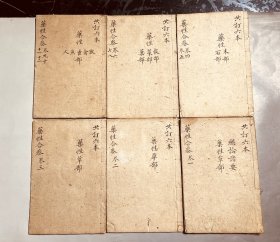 共訂六本
木部
藥性
石部
藥性合參 卷四 卷五
共訂六本
穀部
藥性菜部
菓部
共訂六本
藥性
部
共訂六本
總論諸要
藥性草部
藥性合參 卷一
共訂六本
藥性草部
藥性合參 卷二
共訂六本
藥性草部
藥性合參 卷三